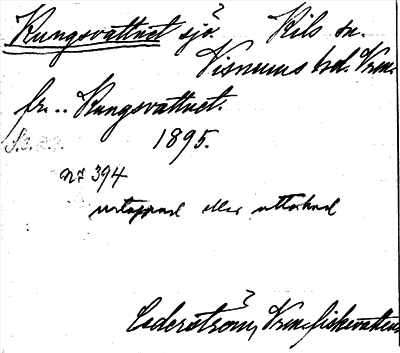 Kungsvattnet sjö. ? Kils sn.
Visnums hd. Vrml.
fr... Kungsvattnet.
1895.
S. 3.
N:r 394
urtappad eller uttorkad
?
Cederström, Vrml. fiskevatten